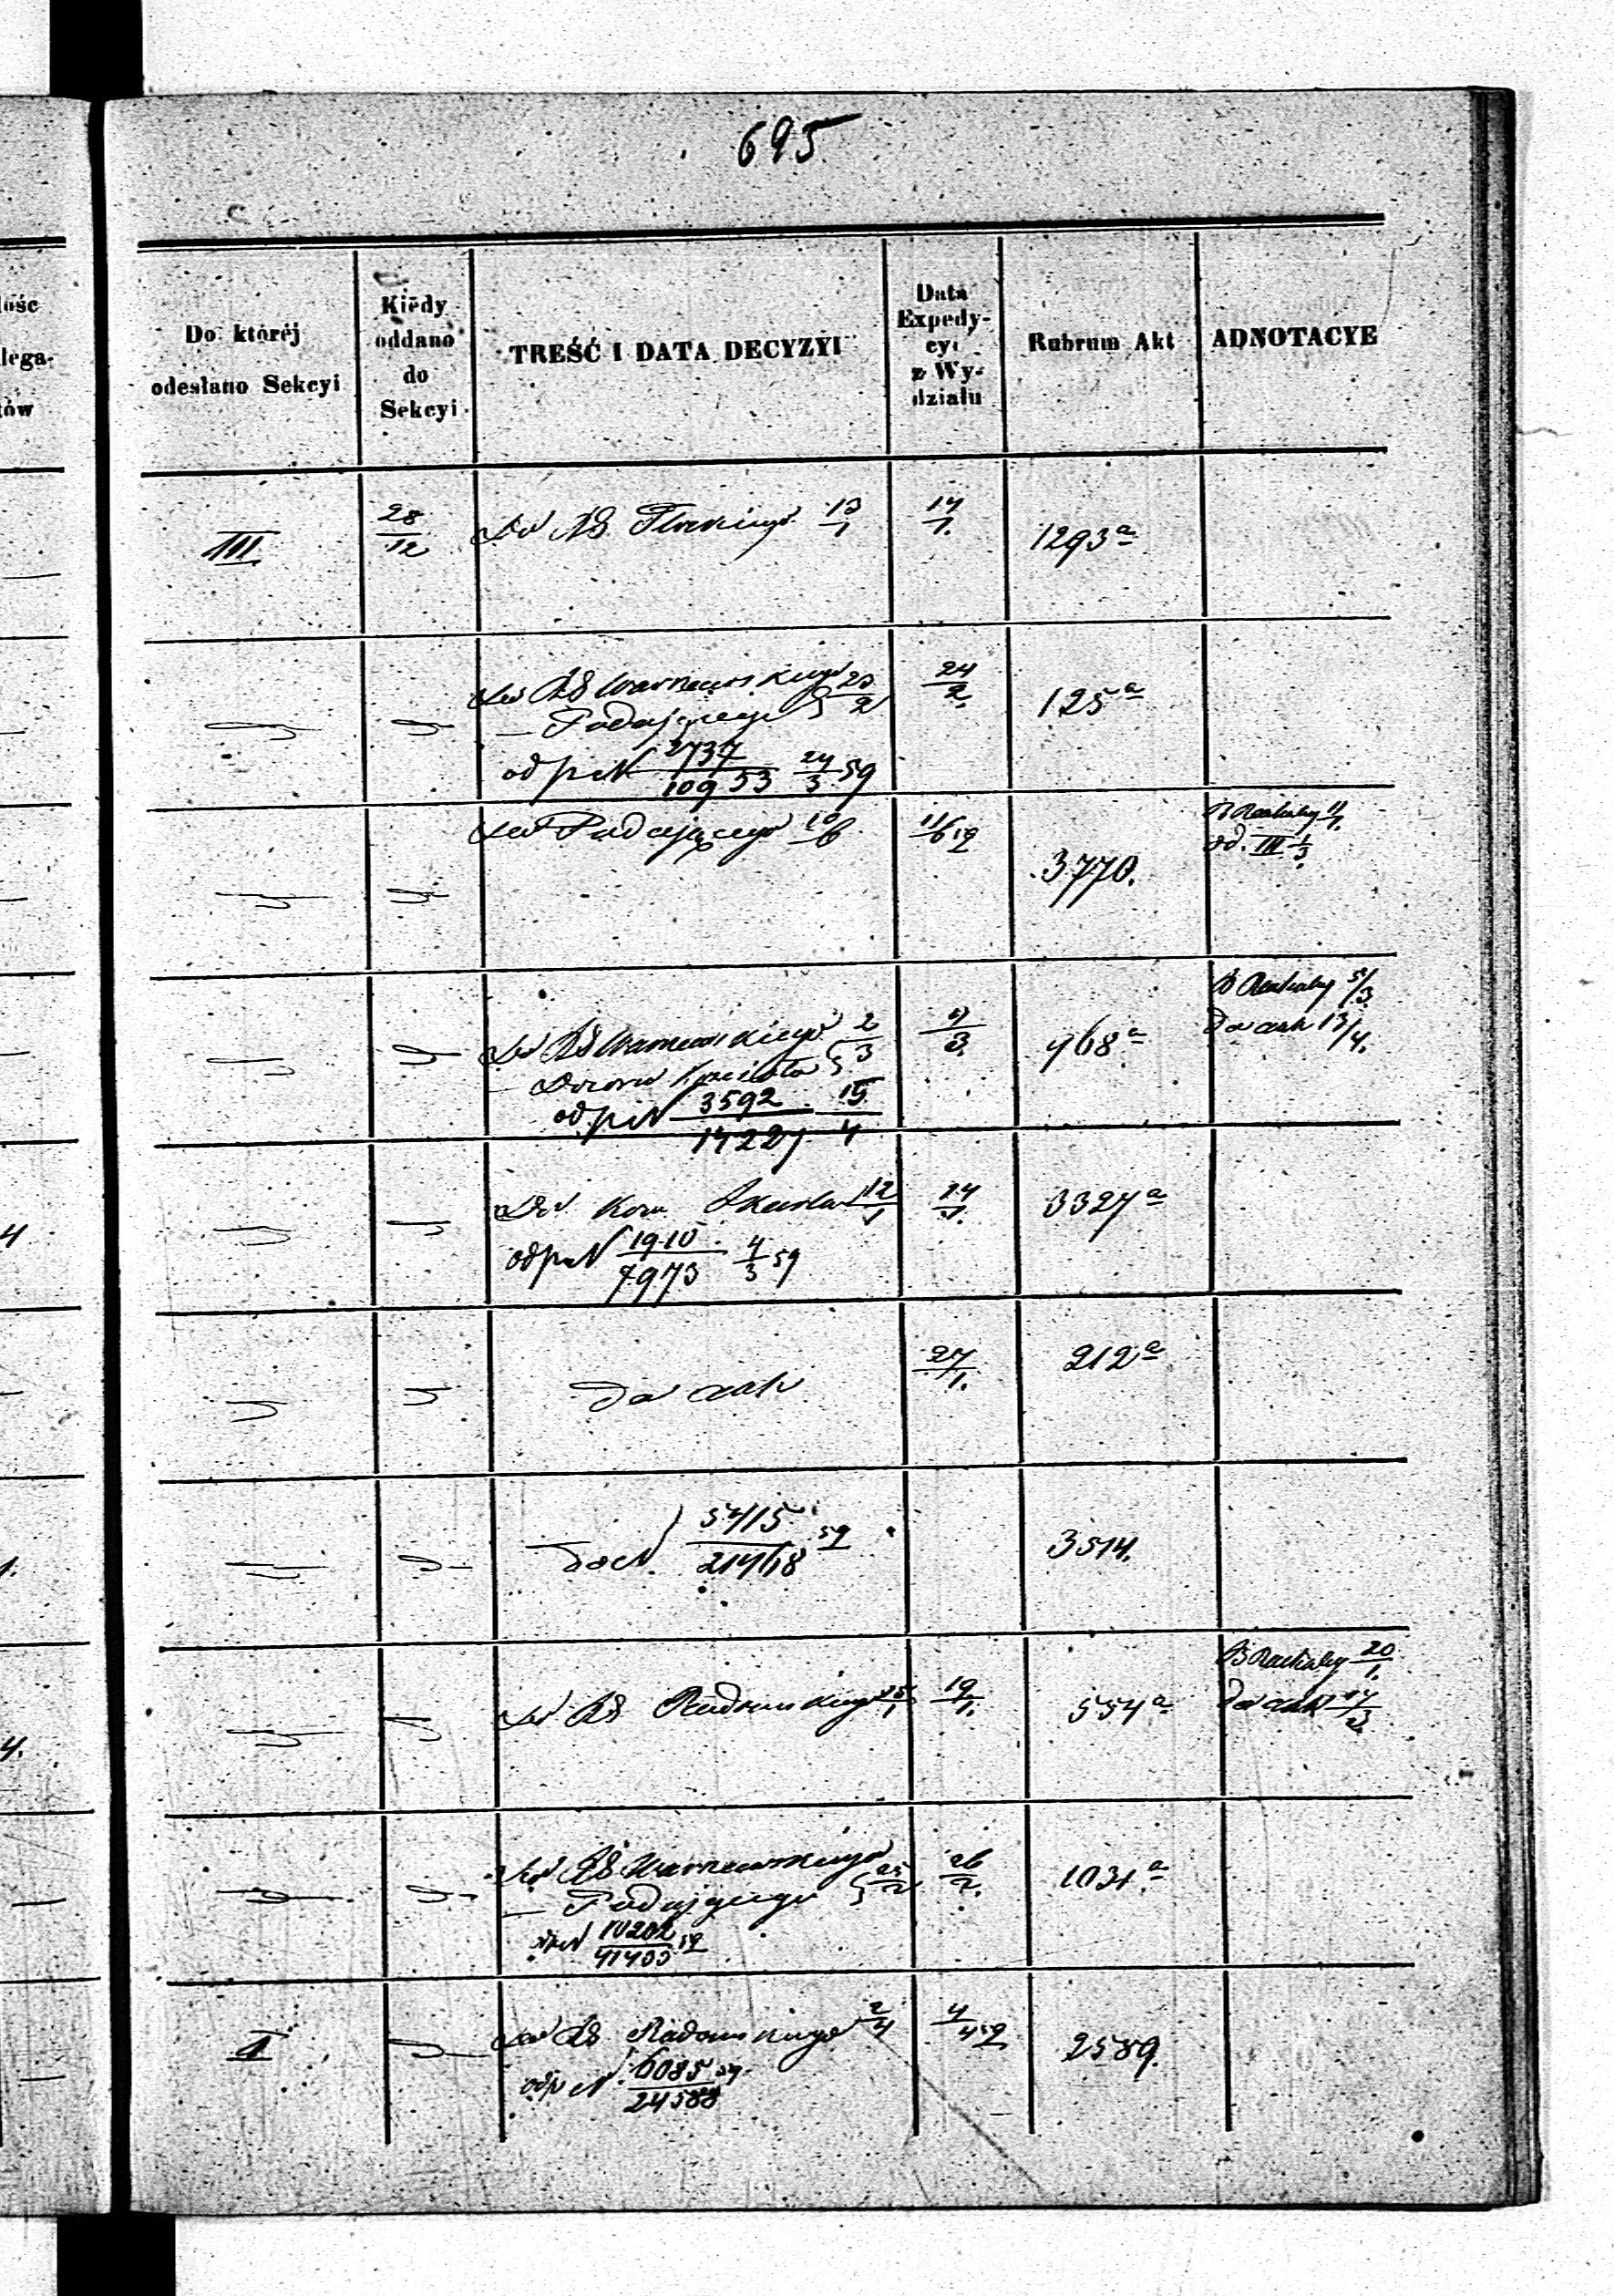 695
lość
lega-
tów
Do któréj
odesłano Sekcyi
Kiedy
oddano
do
Sekcyi
TREŚĆ I DATA DECYZYI
Data
Expedy-
cyi
z Wy-
działu
Rubrum Akt
ADNOTACYE
III
28/12
Do RS 13/1
17/1
1293a
Do RS Warszawskiego 23/2
— Podającego
odp N 2737/10953 24/3 59
24/2
125a
Do Podającego 10/6
11/6 59
3770.
od. III 1/3
Do RS Warszawskiego 2/3
— Dozoru Kościoła
odp N 3592/14227 15/4
9/3
968a
5/3
do akt 13/4.
Do Kom Skarbu 12/1
odp N 1910/7973 4/3 59
14/1
3327a
do akt
27/1.
212a
do N. 5415/21468 59
3514.
Do RS Radomskiego 15/1
19/1.
554a
20/1.
do akt 17/3
Do RS Warszawskiego
— Podającego 25/2
odp N 10202/41403 59
26/2.
1031a
II
Do RS Radomskiego 2/4
odp N. 6085/24588 59
4/4 59
2589.